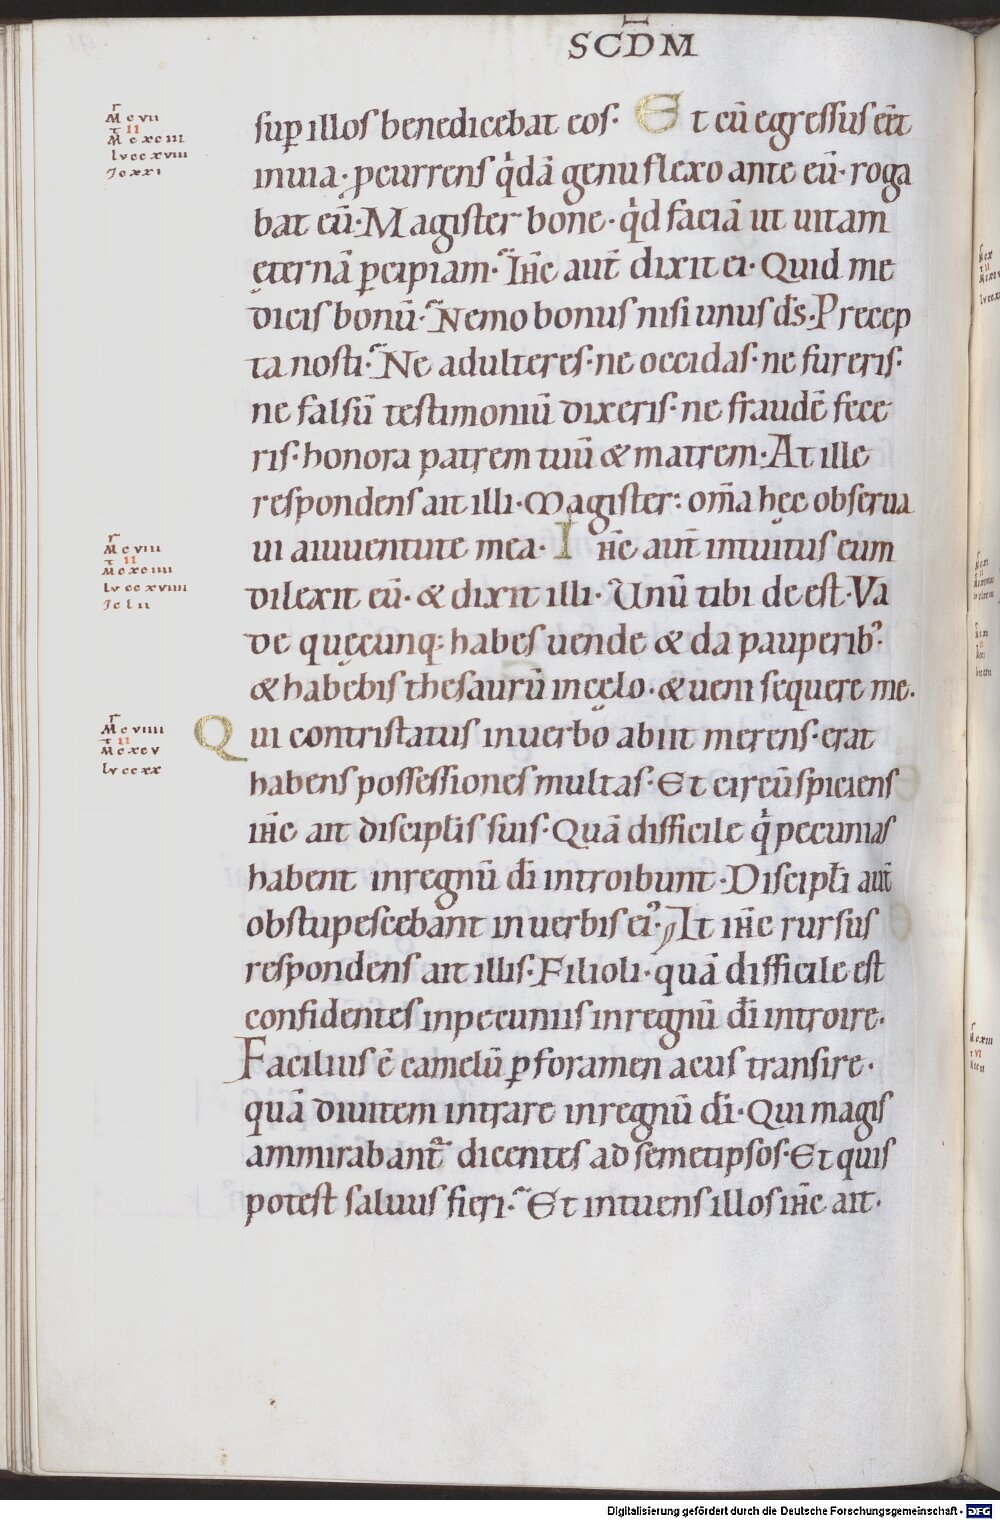 SCD̄M
sup̱ illos benedicebat eos· Et cū egressus eēt
inuia· p̱currens q̍dā genu flexo ante eū· roga
bat eū· Magister bone· q̍d faciā ut uitam
ęternā p̱cipiam· Ih̄c aut̄ dixit ei· Quid me
dicis bonū· Nemo bonus nisi unus d̄s· Precep
ta nosti· Ne adulteres· ne occidas· ne fureris·
ne falsū testimoniū dixeris· ne fraudē fece
ris· honora patrem tuū & matrem· At ille
respondens ait illi· Magister: om̄a hęc obserua
ui aiuuentute mea· Ih̄c aut̄ intuitus eum
dilexit eū· & dixit illi· Unū tibi de est· Va
de quęcunq: habes uende & da pauperibꝰ·
& habebis thesaurū incęlo· & ueni sequere me·
Qui contristatus inuerbo abiit merens· erat
habens possessiones multas· Et circūspiciens
ih̄c ait discipłis suis· Quā difficile q̍ pecunias
habent inregnū d̄i introibunt· Discipłi aut̄
obstupescebant in uerbis eiꝰ· At ih̄c rursus
respondens ait illis· Filioli· quā difficile est
confidentes inpecuniis inregnū d̄i introire·
Facilius ē camelū p̱ foramen acus transire·
quā diuitem intrare inregnū d̄i· Qui magis
ammirabant᷑ dicentes ad semetipsos· Et quis
potest saluus fieri· Et intuens illos ih̄c ait·
M cvii
II
M cxciii
lv ccxviii
Jo xxi
M cviii
II
M cxciiii
lv ccxviiii
Jo lii
M cviiii
II
M cxcv
lv ccxx
Digitalisierung gefördert durch die Deutsche Forschungsgemeinschaft - DFG